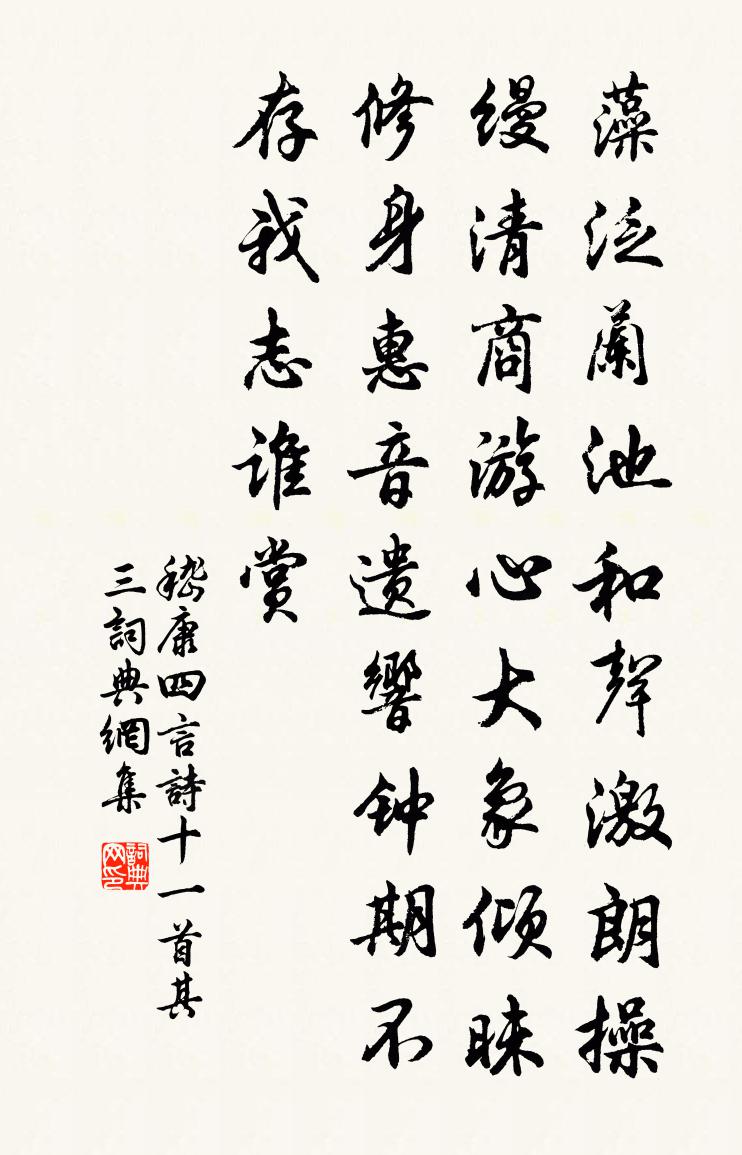 藻泛蘭池和聲激朗操
縵清商游心大象傾昧
修身惠音遺響钟期不
存我志誰賞
嵇康四言詩十一首其
三詞典網集
詞典网印